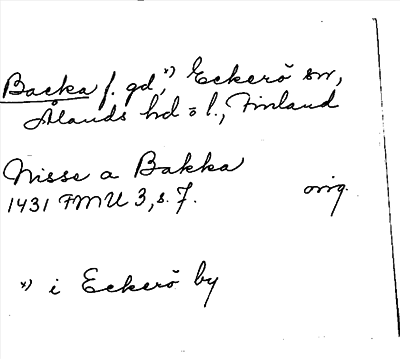 Backa f. gd,*) Eckerö sn,
Ålands hd o l., Finland
Nisse a Bakka
1431 FMU 3, s. 7. orig.
*) i Eckerö by